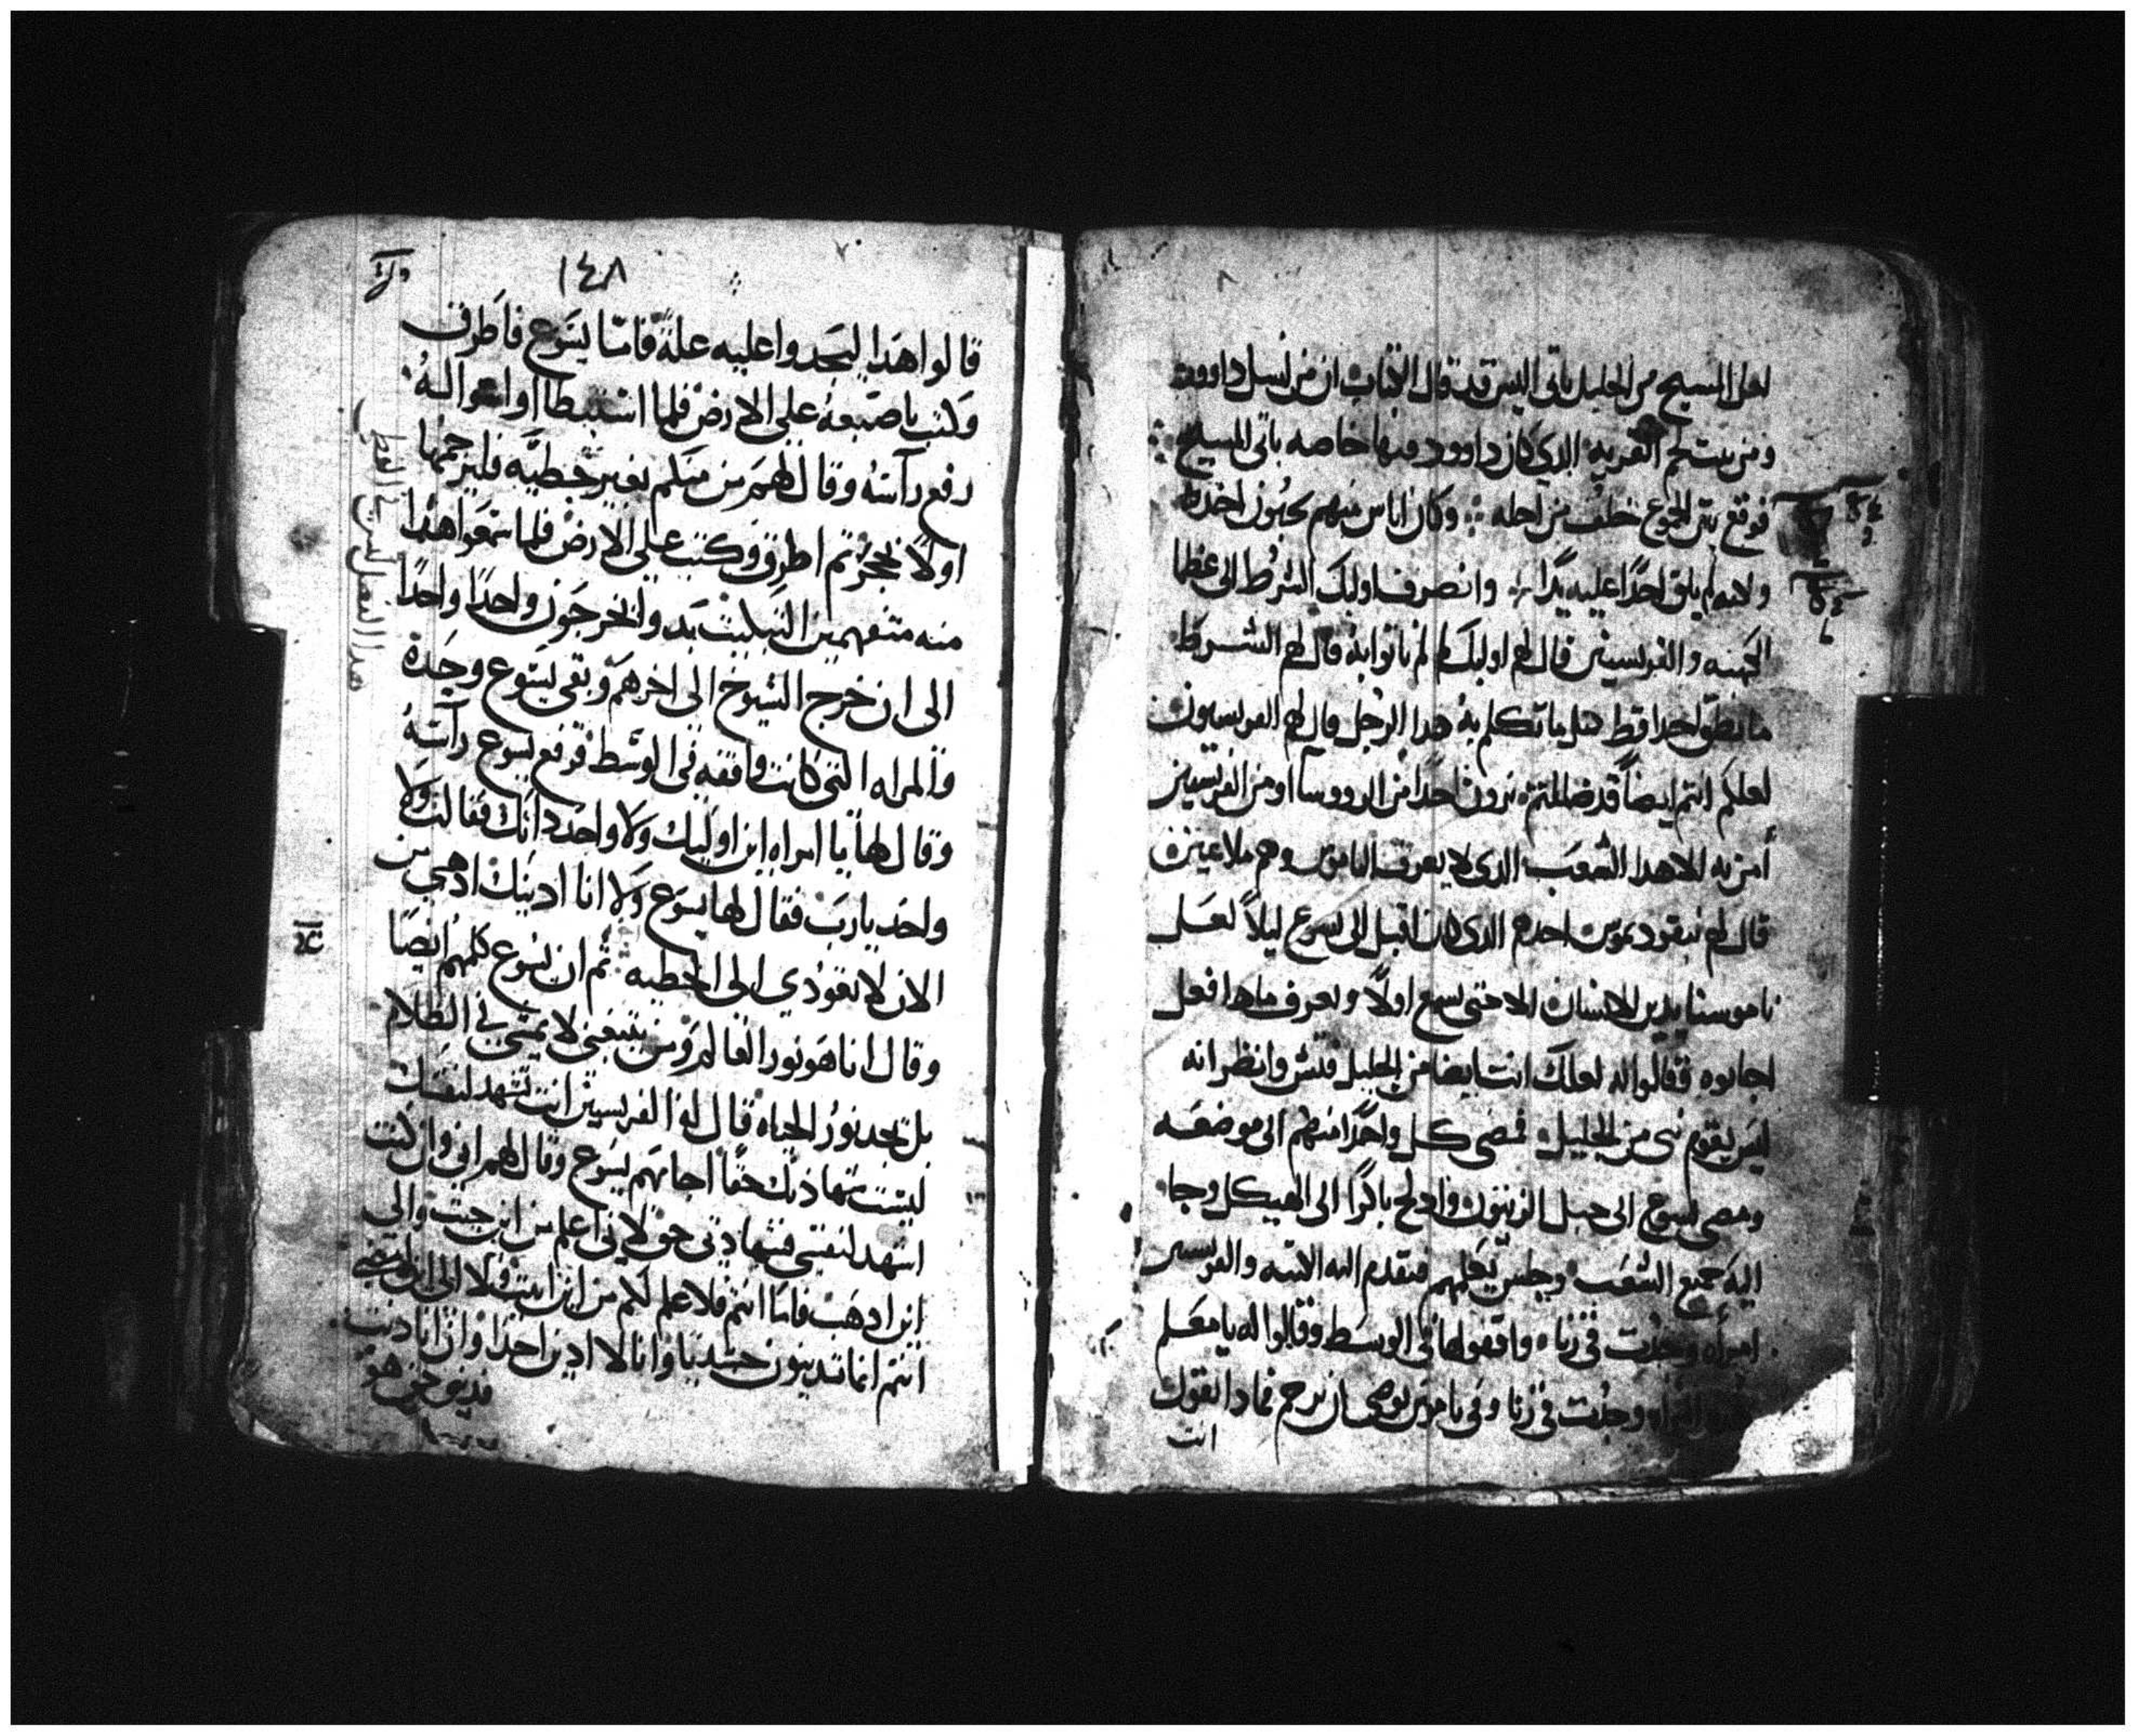 لعل المسيح من الجليل ياتى اليس قد قال الكتاب ان من نسل داوود
ومن بيت لحم القريه الدي كان داوود منها خاصه ياتى المسيح
فوقع بين الجموع خلف من اجله وكان اناس منهم يحبون اخده
ولانه لم يلق احدًا عليه يدًا وانصرف اوليك الشرط الى عظما
الكهنه والفريسين قال لهم اوليك لم لم ياتوا به قال لهم الشرط
ما نطق احدا قط مثل ما تكلم به هدا الرجل قال لهم الفريسيون
لعلكم انتم ايضاً قد ضللتم ترون احدًا من الرووسا او من الفريسين
أمن به الا هدا الشعب الدى لا يعرف الناموس وهم ملاعين
قال لهم نيقوديموس احدهم الدى كان اقبل الى يسوع ليلاً لعل
ناموسنا يدين الانسان الا حتى يسمع اولاً ويعرف ماهدا فعل
اجابوه وقالوا له لعلك انت ايضا من الجليل فتش وانظر انه
ليس يقوم نبى من الجليل فمضى كل واحدًا منهم الى موضعه
ومضى يسوع الى جبل الزيتون وادلج باكرًا الى الهيكل وجا
اليه جميع الشعب وجلس يعلمهم فتقدم اليه الكتبه والفريسين
امرأه وجدت فى زناه واقفوها فى الوسط وقالوا له يا معلم
المراه وجدت فى زنا وفى ناموس موسى ان نرجم فمادا تقول
انت
١٤٨
قالوا هدا ليجدوا عليه علةً فامّا يسَوع فاطرق
وكتب باصبعه على الارض فلما استبطا اوا جوا له
رفع رآسه وقال لهم من منكم بغير خطيّه فليرجمها
اولاً بحجر تم اطرق وكتب على الارض فلما سمعوا هدا
منه متفهمين التبكيت بدوا يخرجون واحدًا واحدًا
الى ان خرج الشيوخ الى اخرهم وبقى يسوع وحده
والمراه التى كانت واقفه فى الوسط فرفع يسوع رآسه
وقال لها يا امراه اين اوليك ولا واحد دانك فقالت ولا
واحد يارب فقال لها يسوع ولا انا ادينك ادهبي من
الان لا تعودي الى الخطيه ثم ان يسوع كلمهم ايضًا
وقال انا هو نور العالم ومن يتبعنى لا يمشى فى الظلام
بل يجد نور الحياه قال له الفريسين انت تشهد لنفسك
ليست شهادتك حقًا اجابهم يسوع وقال لهم انى وان كنت
اشهد لنفسى فشهادتى حق لانى اعلم من اين جيت والى
اين ادهب فاما انتم فلا علم لكم من اين اتيت ولا الى اين امضي
انتم انما تدينون جسديًا وانا لا ادين احدًا وان انا دنت
فدينى حق هو